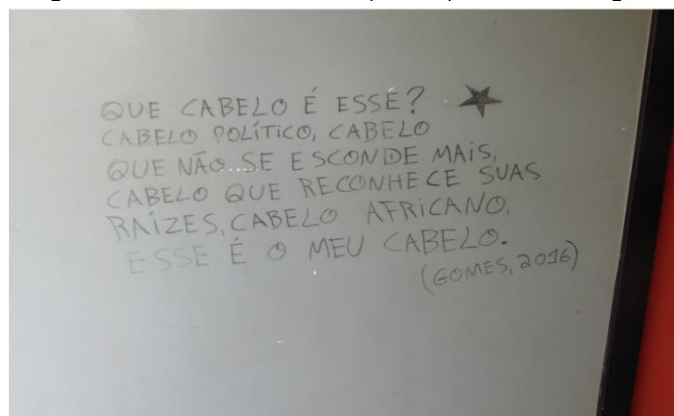 QUE CABELO É ESSE?
CABELO POLÍTICO, CABELO
QUE NÃO SE ESCONDE MAIS,
CABELO QUE RECONHECE SUAS
RAÍZES, CABELO AFRICANO.
ESSE É O MEU CABELO.
(GOMES, 2016)